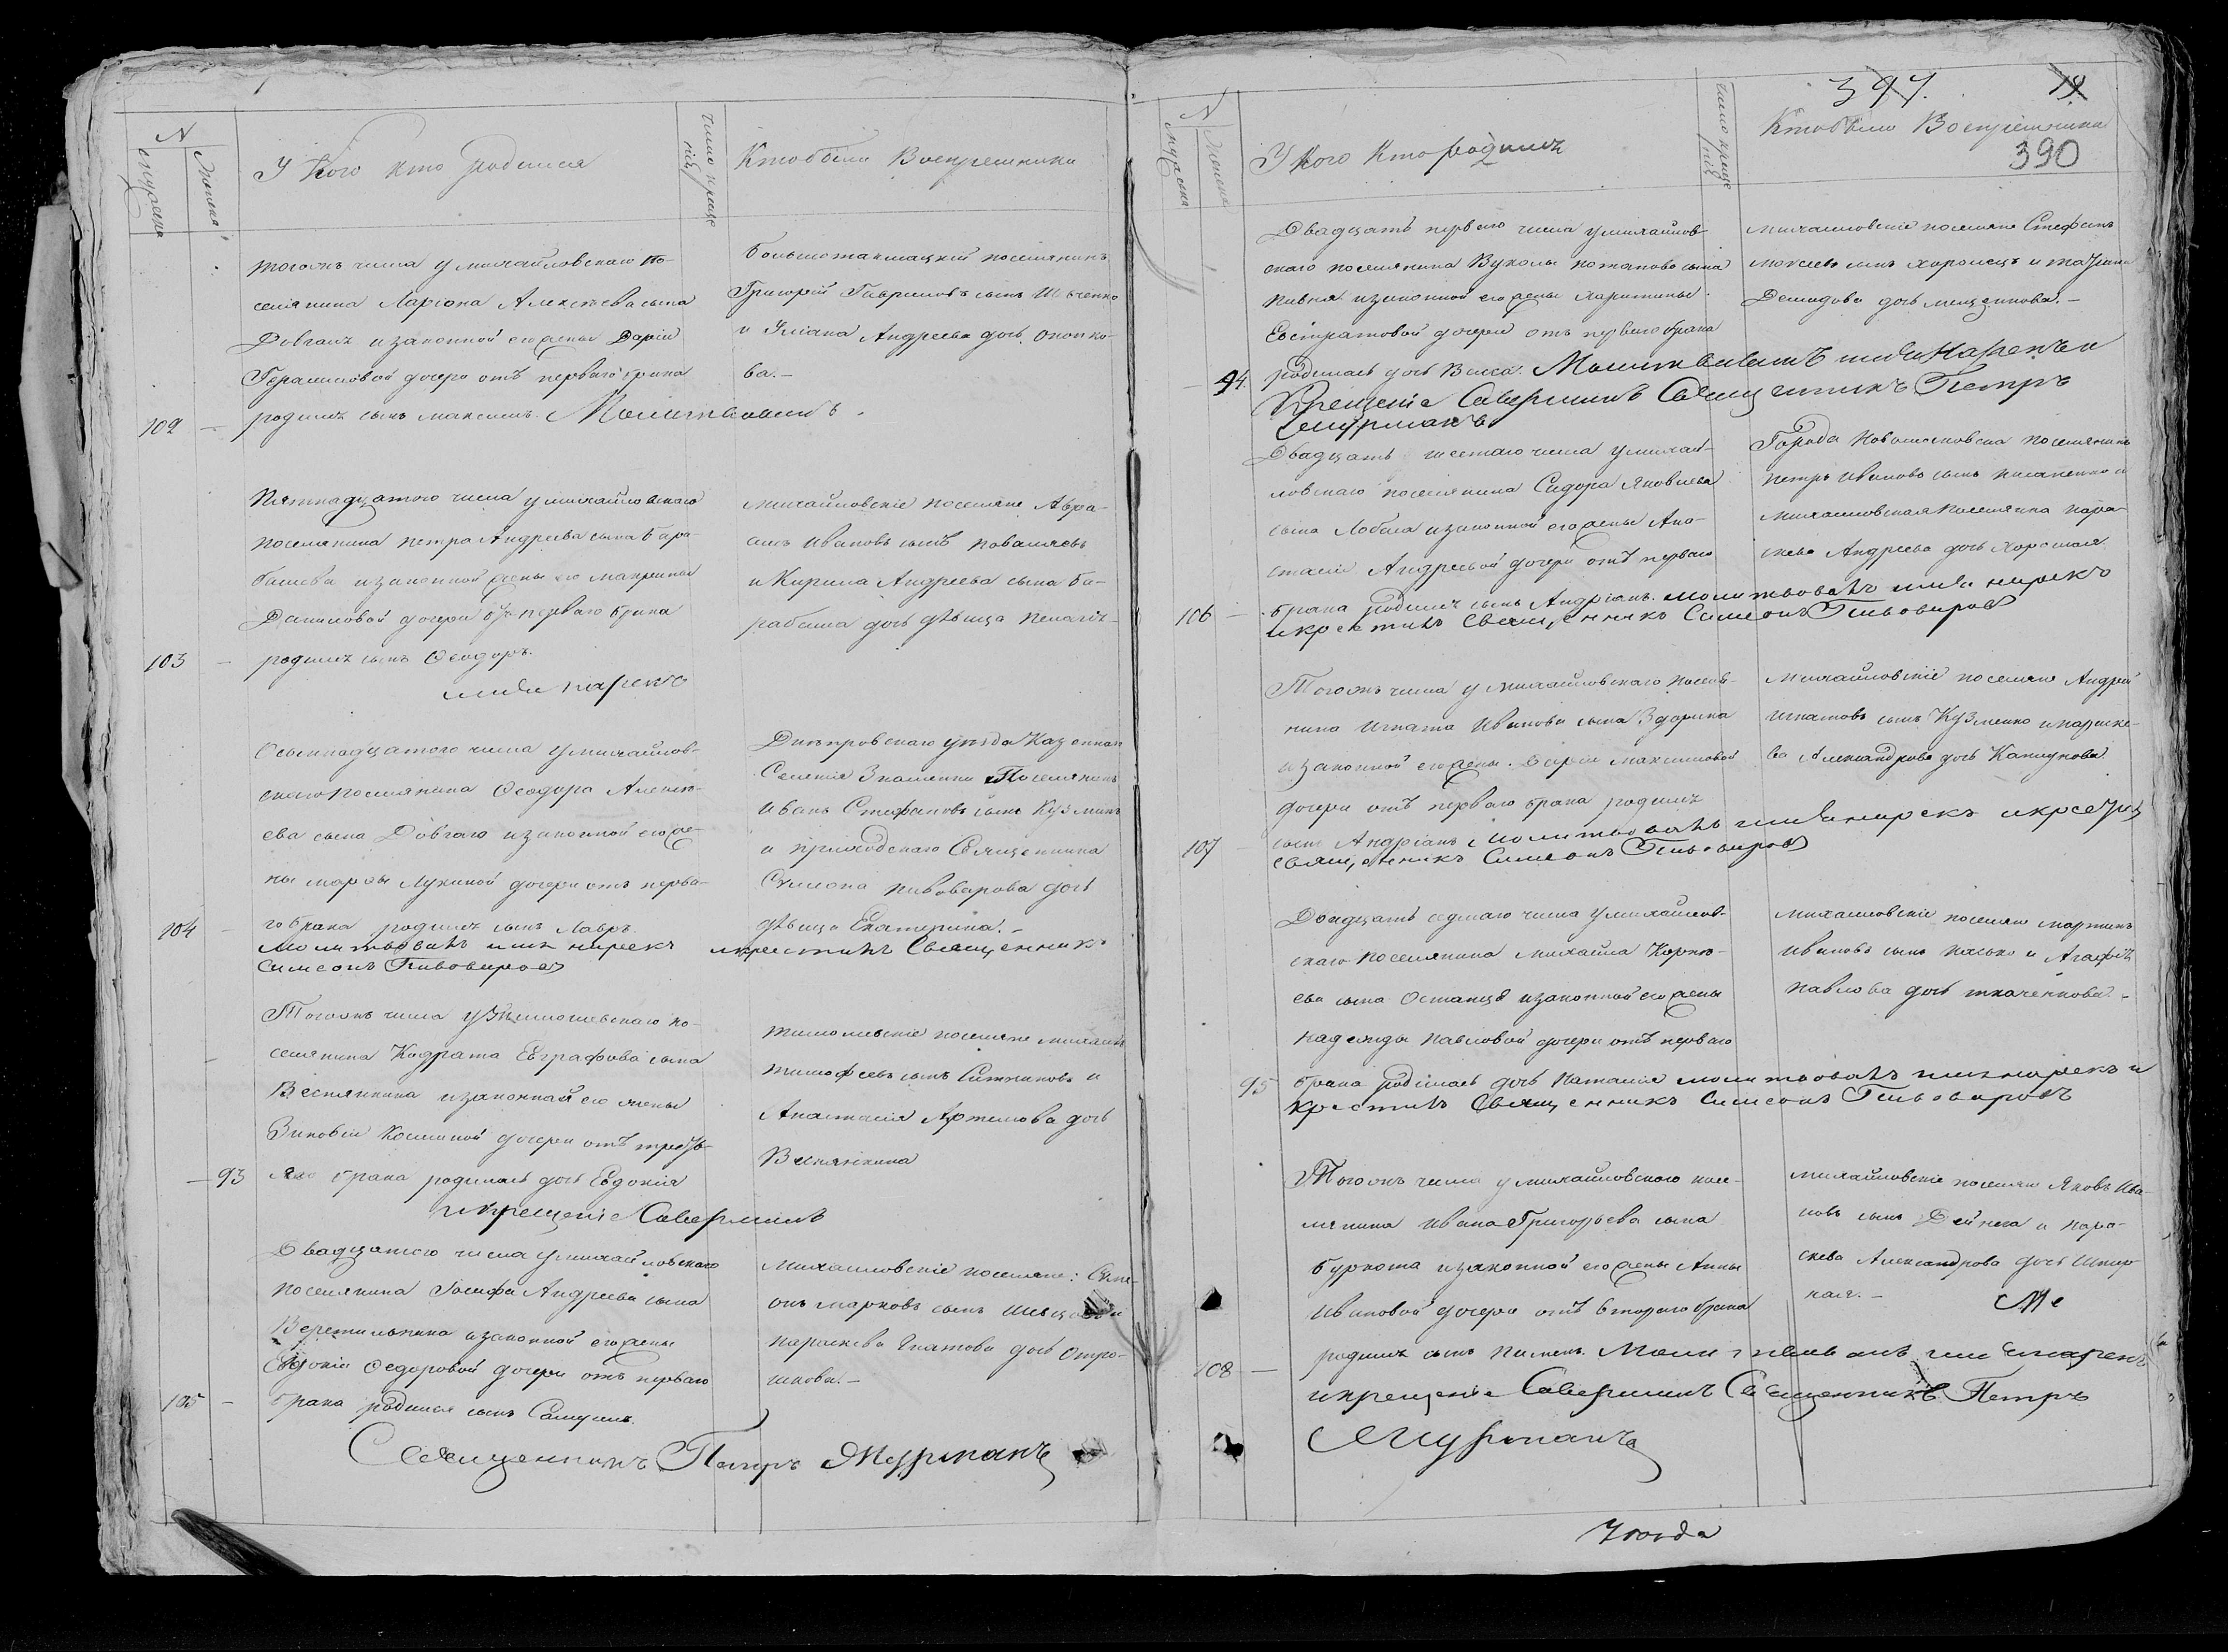 N
мужска
женска
У Кого кто Родился
число креще
нія
Кто были Восприемники
тогожъ числа у михайловскаго по-
селянина Ларіона Алексѣева сына
Довгаль изаконной его жены Дарiи
Герасимовой дочери отъ перваго брака
102 – родилъ сынъ максимъ. Молитвовалъ
Большотакмацкій поселянинъ
Григорій Гавриловъ сынъ Шевченко
и Уліана Андреева дочь
ва. –
Пятнадцатого числа у михайловскаго
поселянина петра Андреева сына Бара-
башева изаконной жены его макрины
Даниловой дочери отъ перваго брака
103 – родилъ сынъ Ѳеодоръ.
имя нареко
михайловскіе поселяне Авра-
амъ Ивановъ сынъ
и Кирила Андреева сына Ба-
рабаша дочь дѣвица Пелагія
Осьмнадцатого числа у михайлов-
скаго поселянина Ѳеодора Алексѣ-
ева сына Довгаго изаконной его же-
ны марѳы Лукиной дочери отъ перва-
104 – го брака родилъ сынъ Лавръ.
молитвовалъ имя нарекъ икрестилъ Священникъ
Симеонъ Пивоваровъ
Днѣпровскаго уѣзда Казеннаго
Селенія Знаменки Поселянинъ
Иванъ Стефановъ сынъ Кузминъ
и приходскаго Священника
Симеона пивоварова дочь
дѣвица Екатерина. –
Тогожъ числа у Тимошевскаго по-
селянина Кодрата Евграфова сына
Веснянкина изаконной его жены
Зиновіи Косминой дочери отъ треть-
– 93 яго брака родилась дочь Евдокія
икрещеніе Совершилъ
тимошевскіе поселяне михаилъ
тимофеевъ сынъ Ситниковъ и
Анастасія Артемова дочь
Веснянкина
Двадцатого числа у михайловскаго
поселянина Іосифа Андреева сына
Веретильника изаконной его жены
Евдокіи Ѳедоровой дочери отъ перваго
105 – брака родился сынъ Самуилъ.
Михайловскіе поселяне: Симе-
онъ марковъ сынъ и
параскева Игнатова дочь Отро-
шкова. –
Священникъ Петръ Мурманъ
397. 14
390
N
мужска
женска
У Кого Кто родилъ
число креще
нія
Кто были Восприемники
Двадцать перваго числа у михайлов-
скаго поселянина Вуколы потапова сына
Пивня изаконной его жены харитины
Евстратовой дочери отъ перваго брака
– 94. родилась дочь Васса. Молитвовалъ имя Нарекъ и
Крещеніе Совершилъ Священникъ Петръ
Мурманъ
михайловскіе поселяне Стефанъ
моисеевъ сынъ хоролецъ и таціана
Демидова дочь мищенкова. –
Двадцать шестаго числа у михай-
ловскаго поселянина Сидора Яковлева
сына Лобача изаконной его жены Ана-
стасіи Андреевой дочери отъ перваго
106 – брака родилъ сынъ Андріанъ. молитвовалъ имя нарекъ
икрестилъ Священникъ Симеонъ Пивоваровъ
Города Новомосковска поселянинъ
петръ Ивановъ сынъ и
михайловская поселянка пара-
скева Андреева дочь Хорошая
Тогожъ числа у михайловскаго поселя-
нина Игната Иванова сына Здорика
изаконной его жены Дарiи максимовой
дочери отъ перваго брака родилъ
107 – сынъ Андріанъ молитвовалъ имя нарекъ икрестилъ
Священникъ Симеонъ Пивоваровъ
михайловскіе поселяне Андрей
Игнатовъ сынъ Кузменко и параске-
ва Александрова дочь
Двадцать седмаго числа у михайлов-
скаго поселянина михаила Корнѣ-
ева сына Останця изаконной его жены
надежды павловой дочери отъ перваго
95 брака родилась дочь Наталія молитвовалъ имя нарекъ и
крестилъ Священникъ Симеонъ Пивоваровъ
михайловскіе поселяне мартинъ
Ивановъ сынъ и Агафія
павлова дочь ткаченкова. –
Тогожъ числа у михайловскаго посе-
лянина Ивана Григорьева сына
Буркота изаконной его жены Анны
Ивановой дочери отъ втораго брака
108 – родилъ сынъ Пименъ. Молитвовалъ имя нарекъ
икрещеніе Совершилъ Священникъ Петръ
Мурманъ
михайловскіе поселяне Яковъ Ива-
новъ сынъ Дейнека и пара-
скева Александрова дочь
ная. –